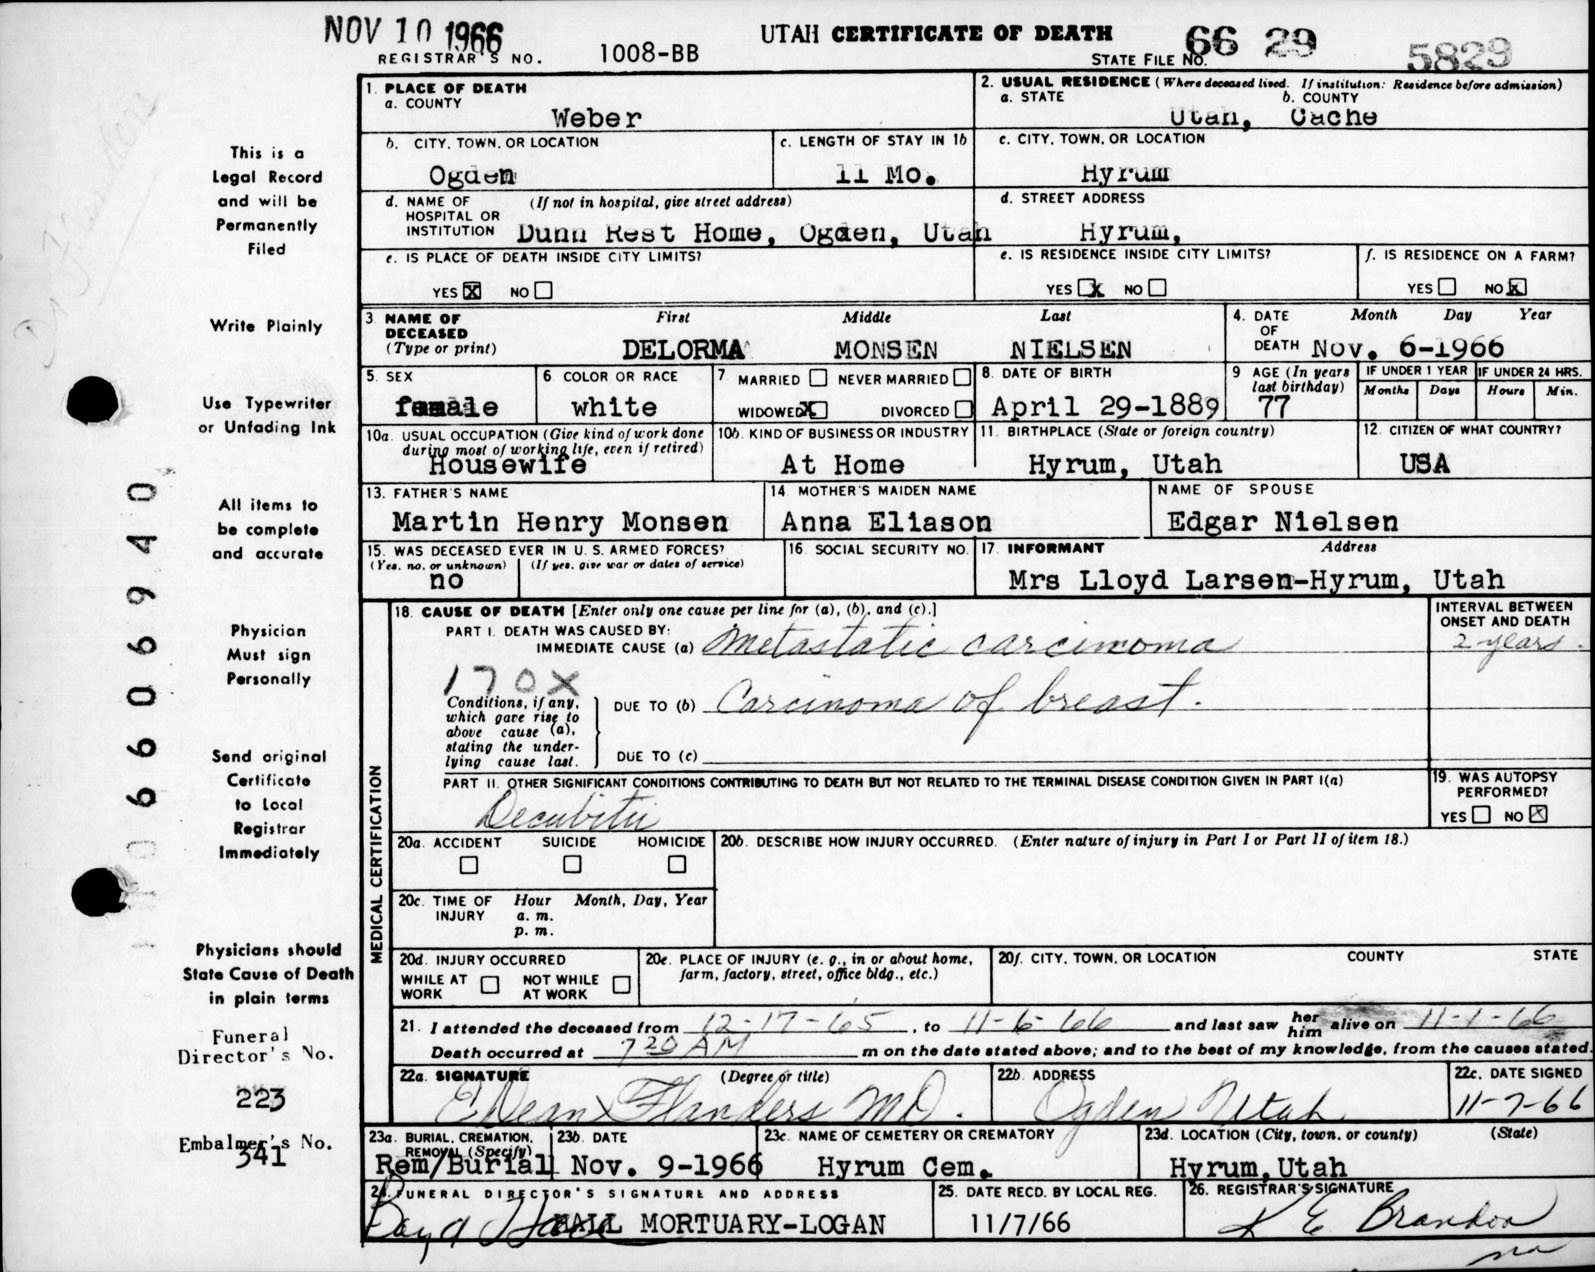 NOV 10 1966
UTAH CERTIFICATE OF DEATH
REGISTRAR'S NO. 1008-BB
STATE FILE NO. 66 29 5829
1. PLACE OF DEATH
a. COUNTY
Weber
2. USUAL RESIDENCE (Where deceased lived. If institution: Residence before admission)
a. STATE b. COUNTY
Utah, Cache
b. CITY, TOWN, OR LOCATION
Ogden
c. LENGTH OF STAY IN 1b
11 Mo.
c. CITY, TOWN, OR LOCATION
Hyrum
d. NAME OF HOSPITAL OR INSTITUTION (If not in hospital, give street address)
Dunn Rest Home, Ogden, Utah
d. STREET ADDRESS
Hyrum,
e. IS PLACE OF DEATH INSIDE CITY LIMITS?
YES X NO
e. IS RESIDENCE INSIDE CITY LIMITS?
YES X NO
f. IS RESIDENCE ON A FARM?
YES NO X
3 NAME OF DECEASED (Type or print)
First Middle Last
DELORMA MONSEN NIELSEN
4. DATE OF DEATH
Month Day Year
Nov. 6-1966
5. SEX
female
6 COLOR OR RACE
white
7 MARRIED NEVER MARRIED
WIDOWED X DIVORCED
8. DATE OF BIRTH
April 29-1889
9 AGE (In years last birthday)
77
IF UNDER 1 YEAR
Months Days
IF UNDER 24 HRS.
Hours Min.
10a. USUAL OCCUPATION (Give kind of work done during most of working life, even if retired)
Housewife
10b. KIND OF BUSINESS OR INDUSTRY
At Home
11. BIRTHPLACE (State or foreign country)
Hyrum, Utah
12. CITIZEN OF WHAT COUNTRY?
USA
13. FATHER'S NAME
Martin Henry Monsen
14. MOTHER'S MAIDEN NAME
Anna Eliason
NAME OF SPOUSE
Edgar Nielsen
15. WAS DECEASED EVER IN U. S. ARMED FORCES?
(Yes, no, or unknown) (If yes, give war or dates of service)
no
16. SOCIAL SECURITY NO.
17. INFORMANT Address
Mrs Lloyd Larsen-Hyrum, Utah
MEDICAL CERTIFICATION
18. CAUSE OF DEATH [Enter only one cause per line for (a), (b), and (c).]
INTERVAL BETWEEN ONSET AND DEATH
PART I. DEATH WAS CAUSED BY:
IMMEDIATE CAUSE (a) Metastatic carcinoma
2 years.
170X
Conditions, if any, which gave rise to above cause (a), stating the underlying cause last.
DUE TO (b) Carcinoma of breast.
DUE TO (c)
PART II. OTHER SIGNIFICANT CONDITIONS CONTRIBUTING TO DEATH BUT NOT RELATED TO THE TERMINAL DISEASE CONDITION GIVEN IN PART I(a)
Decubiti
19. WAS AUTOPSY PERFORMED?
YES NO X
20a. ACCIDENT SUICIDE HOMICIDE
20b. DESCRIBE HOW INJURY OCCURRED. (Enter nature of injury in Part I or Part II of item 18.)
20c. TIME OF INJURY Hour Month, Day, Year
a. m.
p. m.
20d. INJURY OCCURRED
WHILE AT WORK NOT WHILE AT WORK
20e. PLACE OF INJURY (e. g., in or about home, farm, factory, street, office bldg., etc.)
20f. CITY, TOWN, OR LOCATION COUNTY STATE
21. I attended the deceased from 12-17-65, to 11-6-66 and last saw her him alive on 11-1-66
Death occurred at 7 20 AM m on the date stated above; and to the best of my knowledge, from the causes stated.
22a. SIGNATURE (Degree or title)
E Dean Flanders MD.
22b. ADDRESS
Ogden Utah
22c. DATE SIGNED
11-7-66
23a. BURIAL, CREMATION, REMOVAL (Specify)
Rem/Burial
23b. DATE
Nov. 9-1966
23c. NAME OF CEMETERY OR CREMATORY
Hyrum Cem.
23d. LOCATION (City, town, or county) (State)
Hyrum, Utah
24. FUNERAL DIRECTOR'S SIGNATURE AND ADDRESS
HALL MORTUARY-LOGAN
25. DATE RECD. BY LOCAL REG.
11/7/66
26. REGISTRAR'S SIGNATURE
K E Brandon
This is a
Legal Record
and will be
Permanently
Filed
Write Plainly
Use Typewriter
or Unfading Ink
All items to
be complete
and accurate
Physician
Must sign
Personally
Send original
Certificate
to Local
Registrar
Immediately
Physicians should
State Cause of Death
in plain terms
Funeral
Director's No.
223
Embalmer's No.
341
06606940